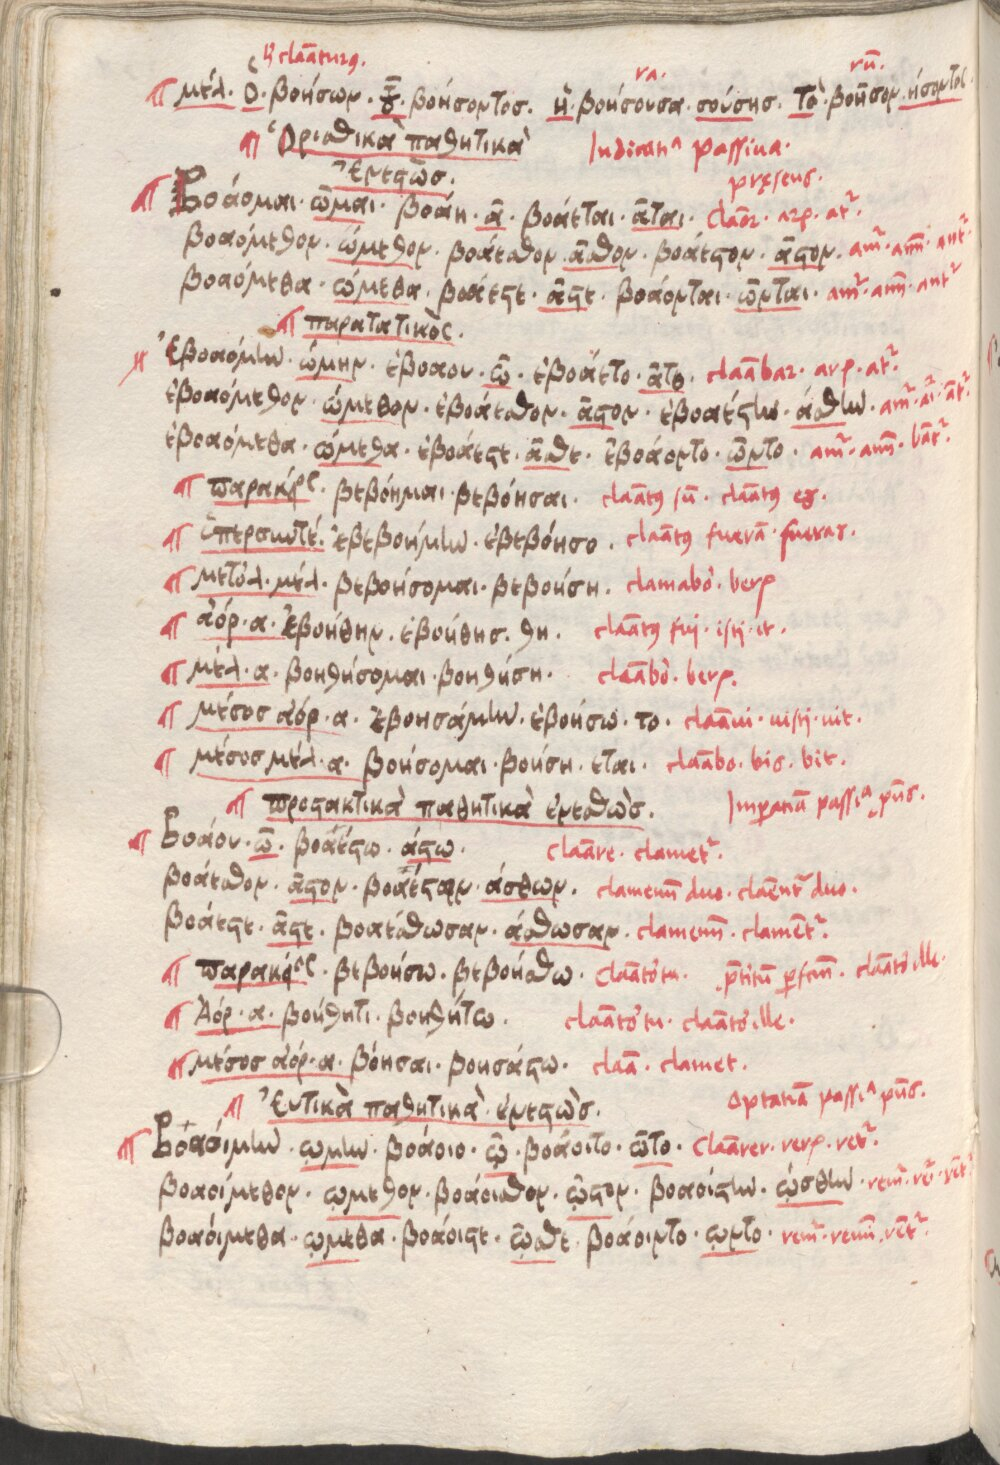 hic clāaturꝰ. ra. rū.
¶ μέλ. ὁ. βοήσων. τοῦ. βοήσοντος. ἡ. βοήσουσα. σούσης. τὸ. βοῆσον. ήσοντος.
¶ Ὁριστικὰ παθητικὰ Indicatiᵃ passiua.
Ἐνεστώς. pręsens.
¶ Βοάομαι. ῶμαι. βοάη. ᾶ. βοάεται. ᾶται. claāor. arꝭ. atʳ.
βοαόμεθον. ώμεθον. βοάεσθον. ᾶσθον. βοάεσθον. ᾶσθον. amʳ. amī. antʳ.
βοαόμεθα. ώμεθα. βοάεσθε. ᾶσθε. βοάονται. ῶνται. amʳ. amī. antʳ
¶ παρατατικὸς.
¶ Ἐβοαόμην. ώμην. ἐβοάου. ῶ. ἐβοάετο. ᾶτο. claābar. arꝭ. atʳ.
ἐβοαόμεθον. ώμεθον. ἐβοάεσθον. ᾶσθον. ἐβοαέσθην. άσθην. amʳ. aī. ātʳ.
ἐβοαόμεθα. ώμεθα. ἐβοάεσθε. ᾶσθε. ἐβοάοντο. ῶντο. amʳ. amī. bātʳ.
¶ παρακ/ος. βεβόημαι. βεβόησαι. claātꝰ sū. claātꝰ es.
¶ ὑπερσυντέ. ἐβεβοήμην. ἐβεβόησο. claātꝰ fuerā. fueras.
¶ μετολ. μέλ. βεβοήσομαι. βεβοήση. clamabor. berꝭ
¶ ἀόρ. α. ἐβοήθην. ἐβοήθης. θη. claātꝰ fui. isti. it.
¶ μέλ. α. βοηθήσομαι. βοηθήση. claābor. berꝭ.
¶ μέσος ἀόρ. α. ἐβοησάμην. ἐβοήσω. το. claāui. uisti. uit.
¶ μέσος μέλ. α. βοήσομαι. βοήση. εται. claābo. bis. bit.
¶ προστακτικὰ παθητικὰ ἐνεστὼς. Imperatiā passiᵃ pn̄s.
¶ Βοάου. ῶ. βοαέσθω. άσθω. claāre. clametʳ.
βοάεσθον. ᾶσθον. βοαέσθων. άσθων. clamemī duo. claēntʳ duo.
βοάεσθε. ᾶσθε. βοαέσθωσαν. άσθωσαν. clamemī. clamētʳ.
¶ παρακ/ος. βεβόησω. βεβοήσθω. Claātor tu. p̄titū ꝑfcm̄. claātor ille.
¶ Ἀόρ. α. βοήθητι. βοηθήτω. claātor tu. claātor ille.
¶ μέσος ἀόρ. α. βόησαι. βοησάσθω. claā. clamet.
¶ Ἐυτικὰ παθητικὰ. ἐνεστὼς. Optatiā passiᵃ pn̄s.
¶ Βοαοίμην. ῴμην. βοάοιο. ῷ. βοάοιτο. ῷτο. claārer. rerꝭ. retʳ.
βοαοίμεθον. ῴμεθον. βοάοισθον. ῷσθον. βοαοίσθην. ῴσθην. remʳ. reī. rētʳ
βοαοίμεθα. ῴμεθα. βοάοισθε. ῷσθε. βοάοιντο. ῷντο. remʳ. remī. rētʳ.